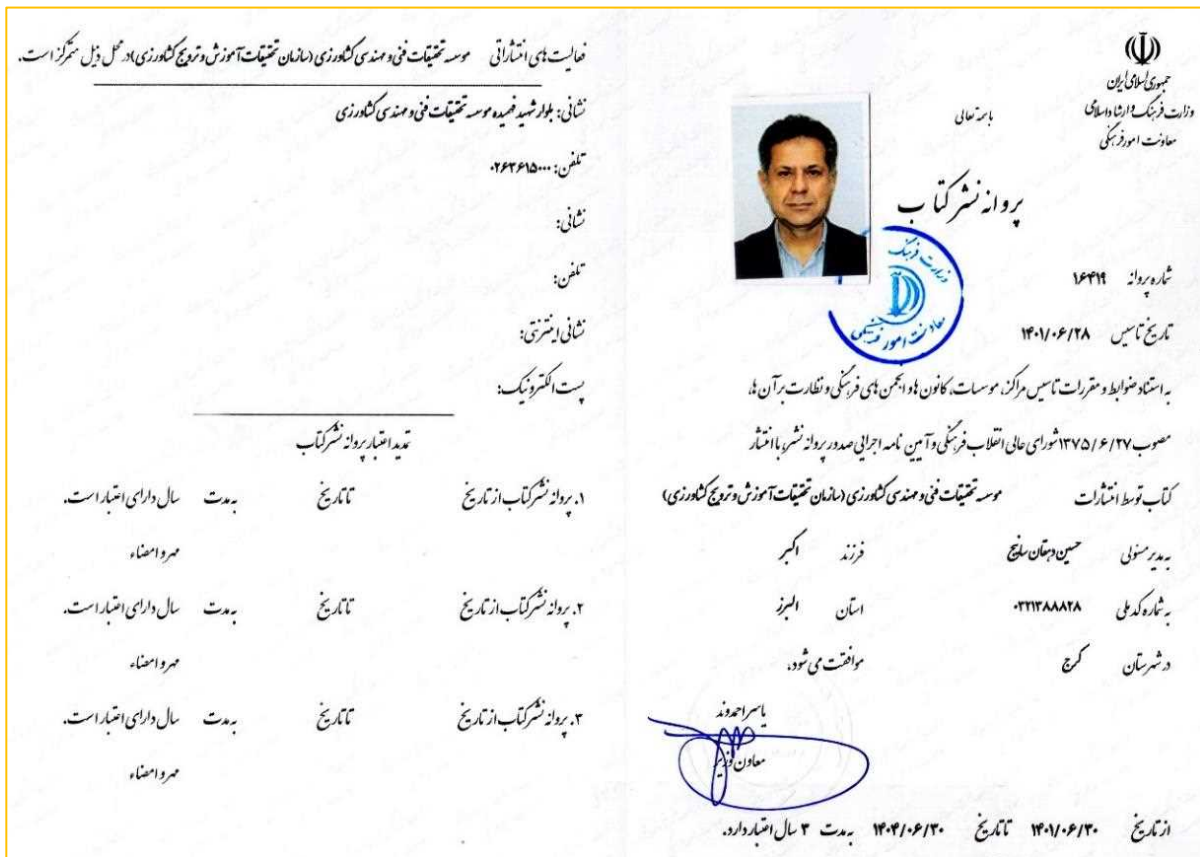 جمهوری اسلامی ایران
وزارت فرهنگ و ارشاد اسلامی
معاونت امور فرهنگی
باسمه تعالی
پروانه نشر کتاب
وزارت فرهنگ
معاونت امور فرهنگی
شماره پروانه ۱۶۴۱۹
تاریخ تاسیس ۱۴۰۱/۰۶/۲۸
به استناد ضوابط و مقررات تاسیس مراکز، موسسات، کانون ها و انجمن های فرهنگی و نظارت بر آن ها،
مصوب ۱۳۷۵/۶/۲۷ شورای عالی انقلاب فرهنگی و آیین نامه اجرایی صدور پروانه نشر، با انتشار
کتاب توسط انتشارات موسسه تحقیقات فنی و مهندسی کشاورزی (سازمان تحقیقات آموزش و ترویج کشاورزی)
به مدیر مسئولی حسین دهقان سانیج فرزند اکبر
به شماره کد ملی ۰۳۲۱۳۸۸۸۲۸ استان البرز
در شهرستان کرج موافقت می شود.
یاسر احمدوند
معاون وزیر
از تاریخ ۱۴۰۱/۰۶/۳۰ تا تاریخ ۱۴۰۴/۰۶/۳۰ به مدت ۳ سال اعتبار دارد.
فعالیت های انتشاراتی موسسه تحقیقات فنی و مهندسی کشاورزی (سازمان تحقیقات آموزش و ترویج کشاورزی) در محل ذیل متمرکز است.
نشانی: بلوار شهید فهمیده موسسه تحقیقات فنی و مهندسی کشاورزی
تلفن: ۰۲۶۳۶۱۵۰۰۰
نشانی:
تلفن:
نشانی اینترنتی:
پست الکترونیک:
تمدید اعتبار پروانه نشر کتاب
۱. پروانه نشر کتاب از تاریخ تا تاریخ به مدت سال دارای اعتبار است.
مهر و امضاء
۲. پروانه نشر کتاب از تاریخ تا تاریخ به مدت سال دارای اعتبار است.
مهر و امضاء
۳. پروانه نشر کتاب از تاریخ تا تاریخ به مدت سال دارای اعتبار است.
مهر و امضاء